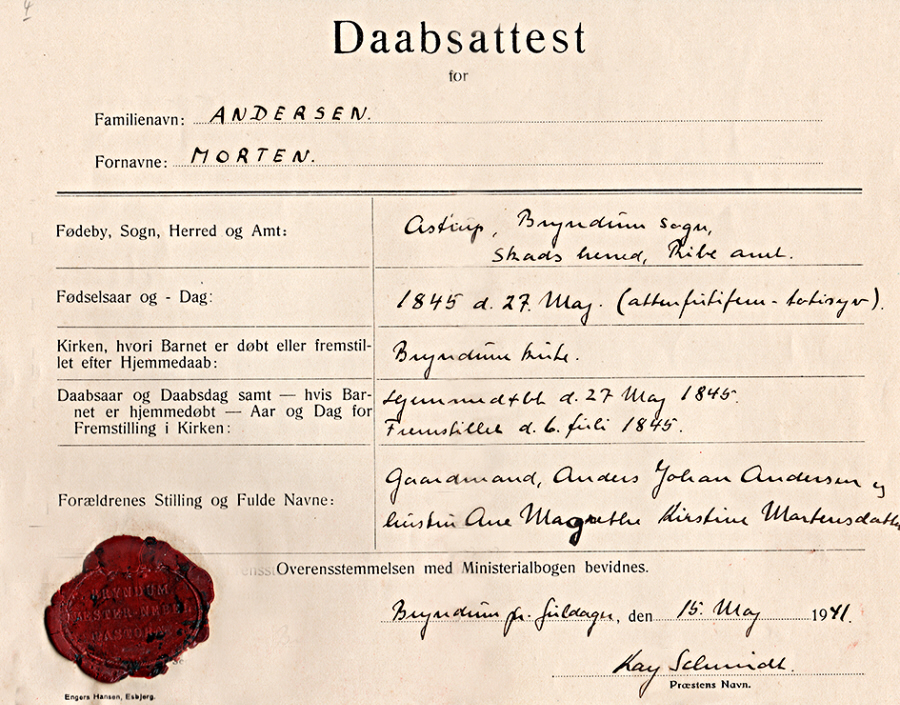 Daabsattest
for
Familienavn: ANDERSEN.
Fornavne: MORTEN.
Fødeby, Sogn, Herred og Amt: Astrup, Bryndum sogn,
Skads herred, Ribe amt.
Fødselsaar og - Dag: 1845 d. 27. Maj. (attenfirtifem - totisyv).
Kirken, hvori Barnet er døbt eller fremstil-
let efter Hjemmedaab: Bryndum kirke.
Daabsaar og Daabsdag samt — hvis Bar-
net er hjemmedøbt — Aar og Dag for
Fremstilling i Kirken:
Hjemmedøbt d. 27 Maj 1845.
Fremstillet d. 6. juli 1845.
Forældrenes Stilling og Fulde Navne:
Gaardmand, Anders Johan Andersen og
hustru Ane Magrethe Kirstine Martensdatter
Overensstemmelsen med Ministerialbogen bevidnes.
Bryndum pr. Guldager, den 15. Maj 1941.
Kay Schmidt.
Præstens Navn.
BRYNDUM
VESTER-NEBEL
PASTORAT
Engers Hansen, Esbjerg.